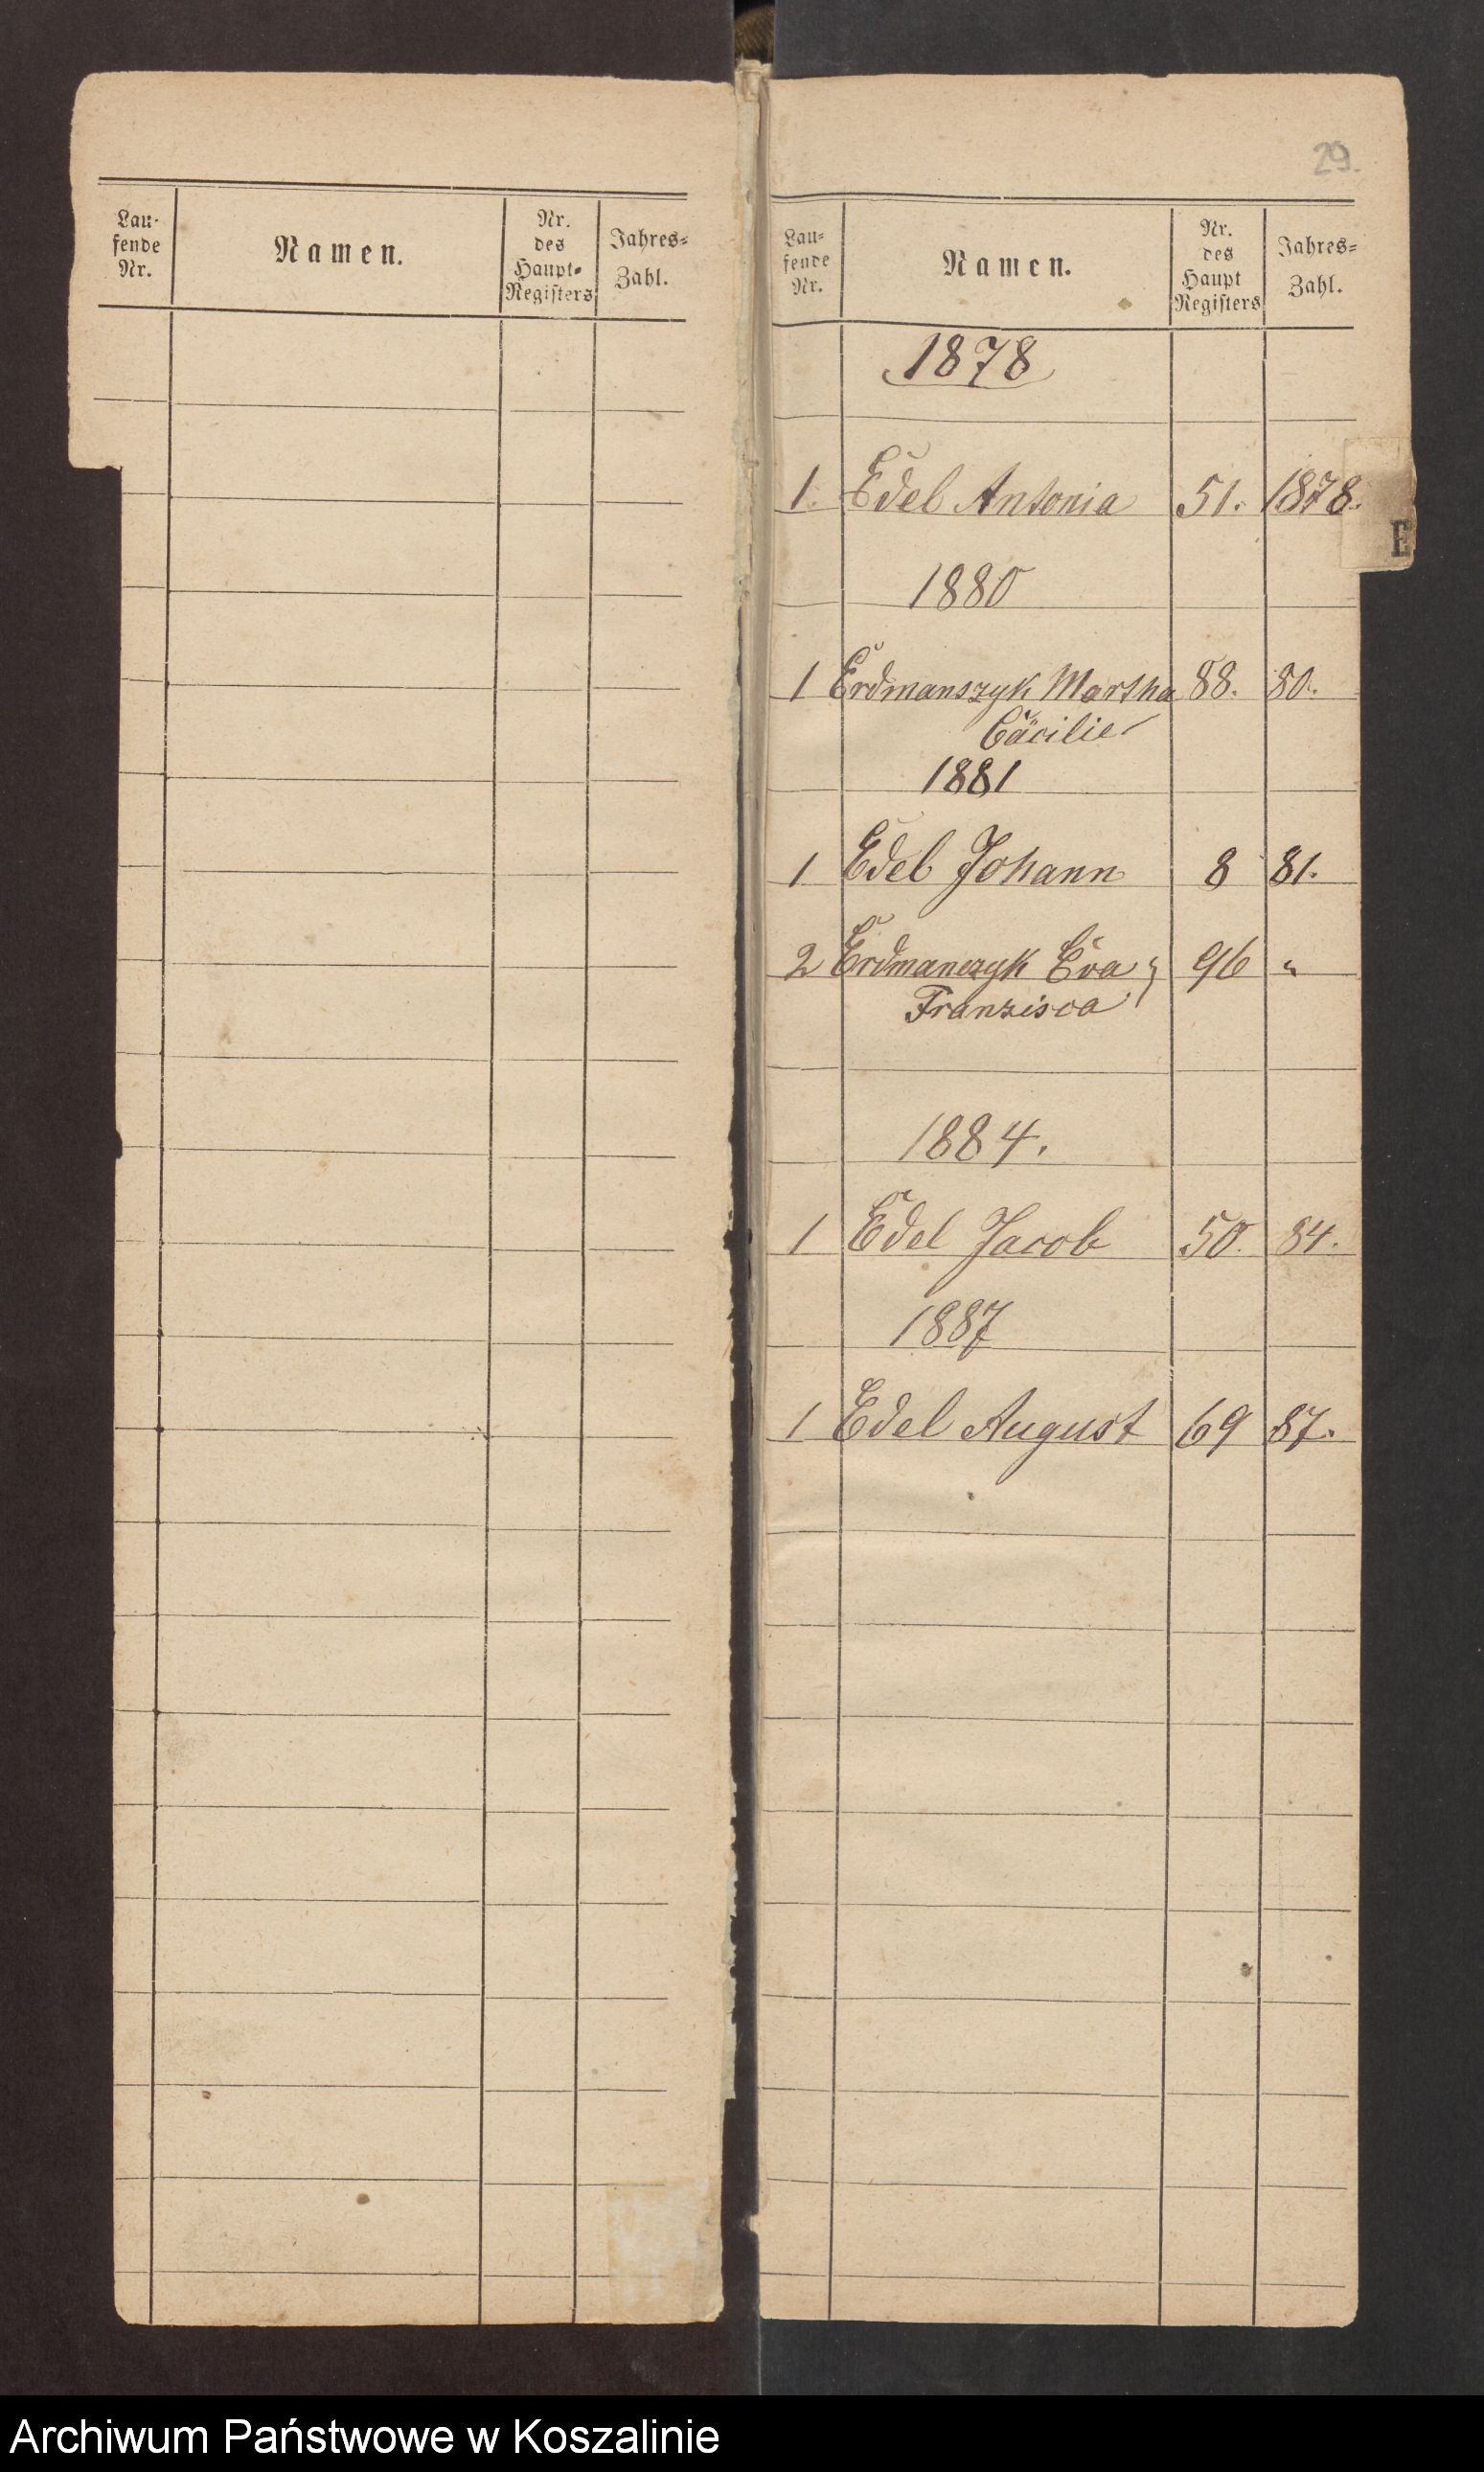 Lau-
fende
Nr.
Namen.
Nr.
des
Haupt-
Registers
Jahres-
Zahl.
29.
Lau-
fende
Nr.
Namen.
Nr.
des
Haupt
Registers
Jahres-
Zahl.
1878
1. Edel Antonia 51. 1878.
E
1880
1 Erdmanszyk Martha 88. 80.
Cäcilie
1881
1 Edel Johann 8 81.
2 Erdmanczyk Eva 96 "
Franzisca
1884.
1 Edel Jacob 50. 84.
1887
1 Edel August 69 87.
Archiwum Państwowe w Koszalinie